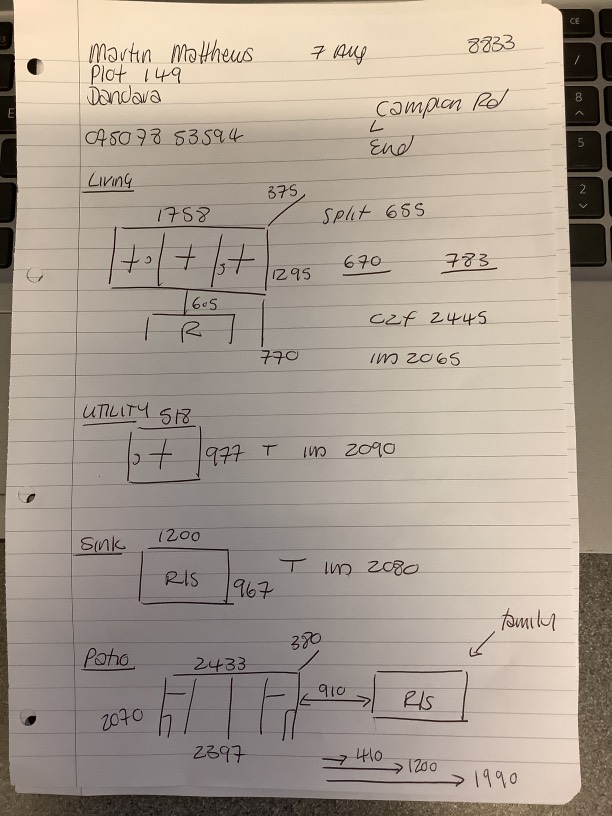 Martin Matthews 7 Aug 8833
Plot 149
Dandara
Campion Rd
End
075078 53594
Living
375
1758 split 655
1295 670 783
605
R
c2f 2445
770 im 2065
UTILITY 518
977 T im 2090
Sink 1200
R/S 967 T im 2080
family
Patio 2433 380
910 R/S
2070
2397
410
1200
1990
CE
/
8
5
2
E